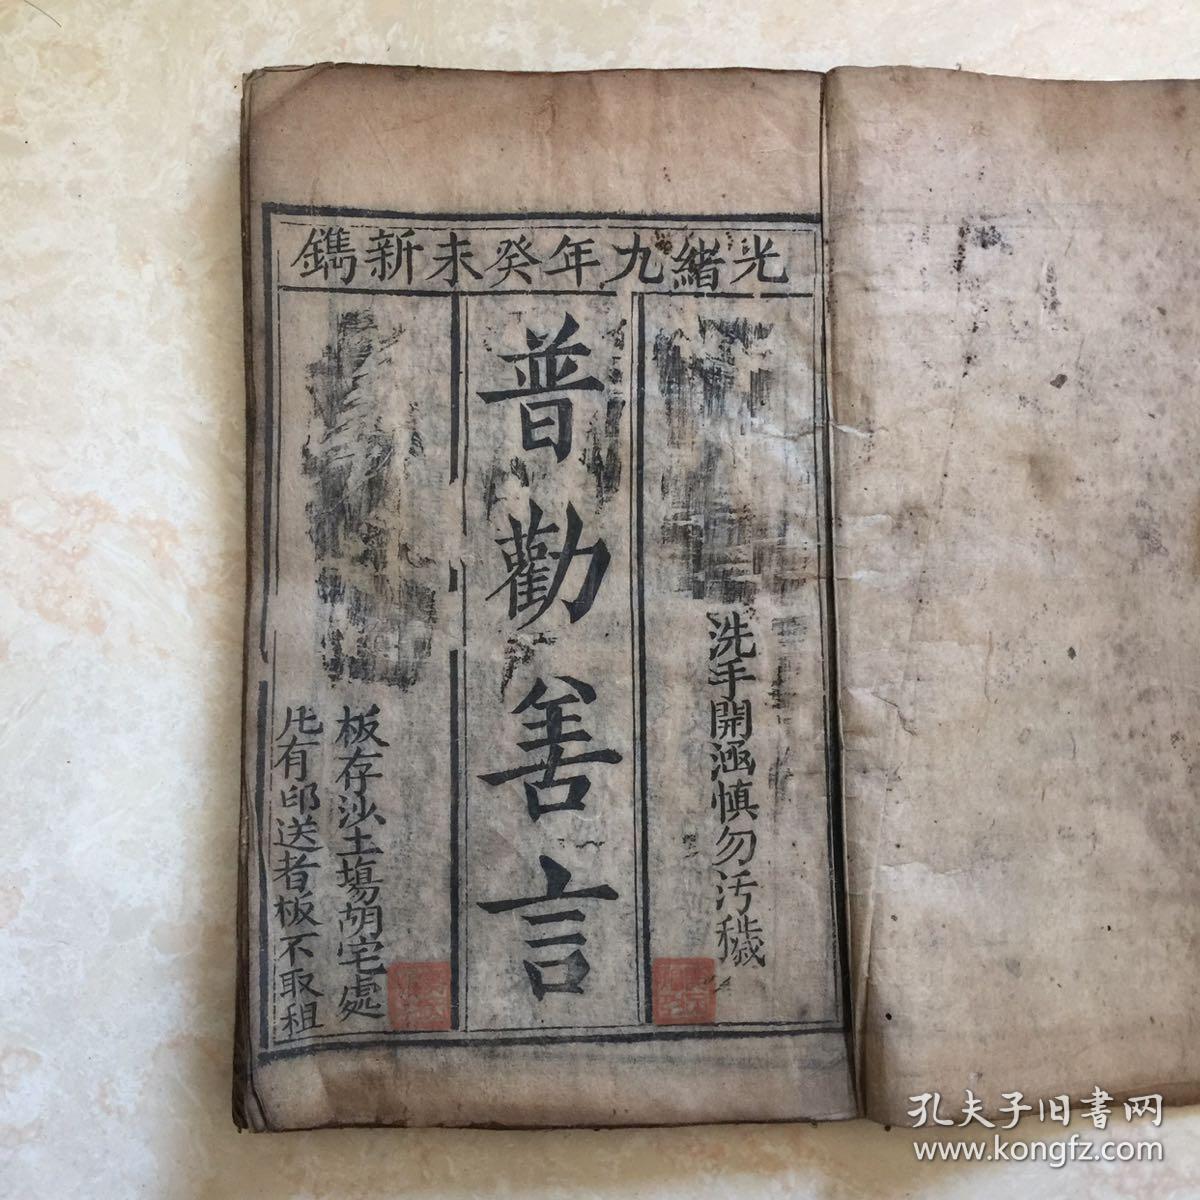 光緒九年癸未新鐫
洗手開涵慎勿汚穢
普勸善言
板存沙土塲胡宅處
凡有印送者板不取租
孔夫子旧書网
www.kongfz.com